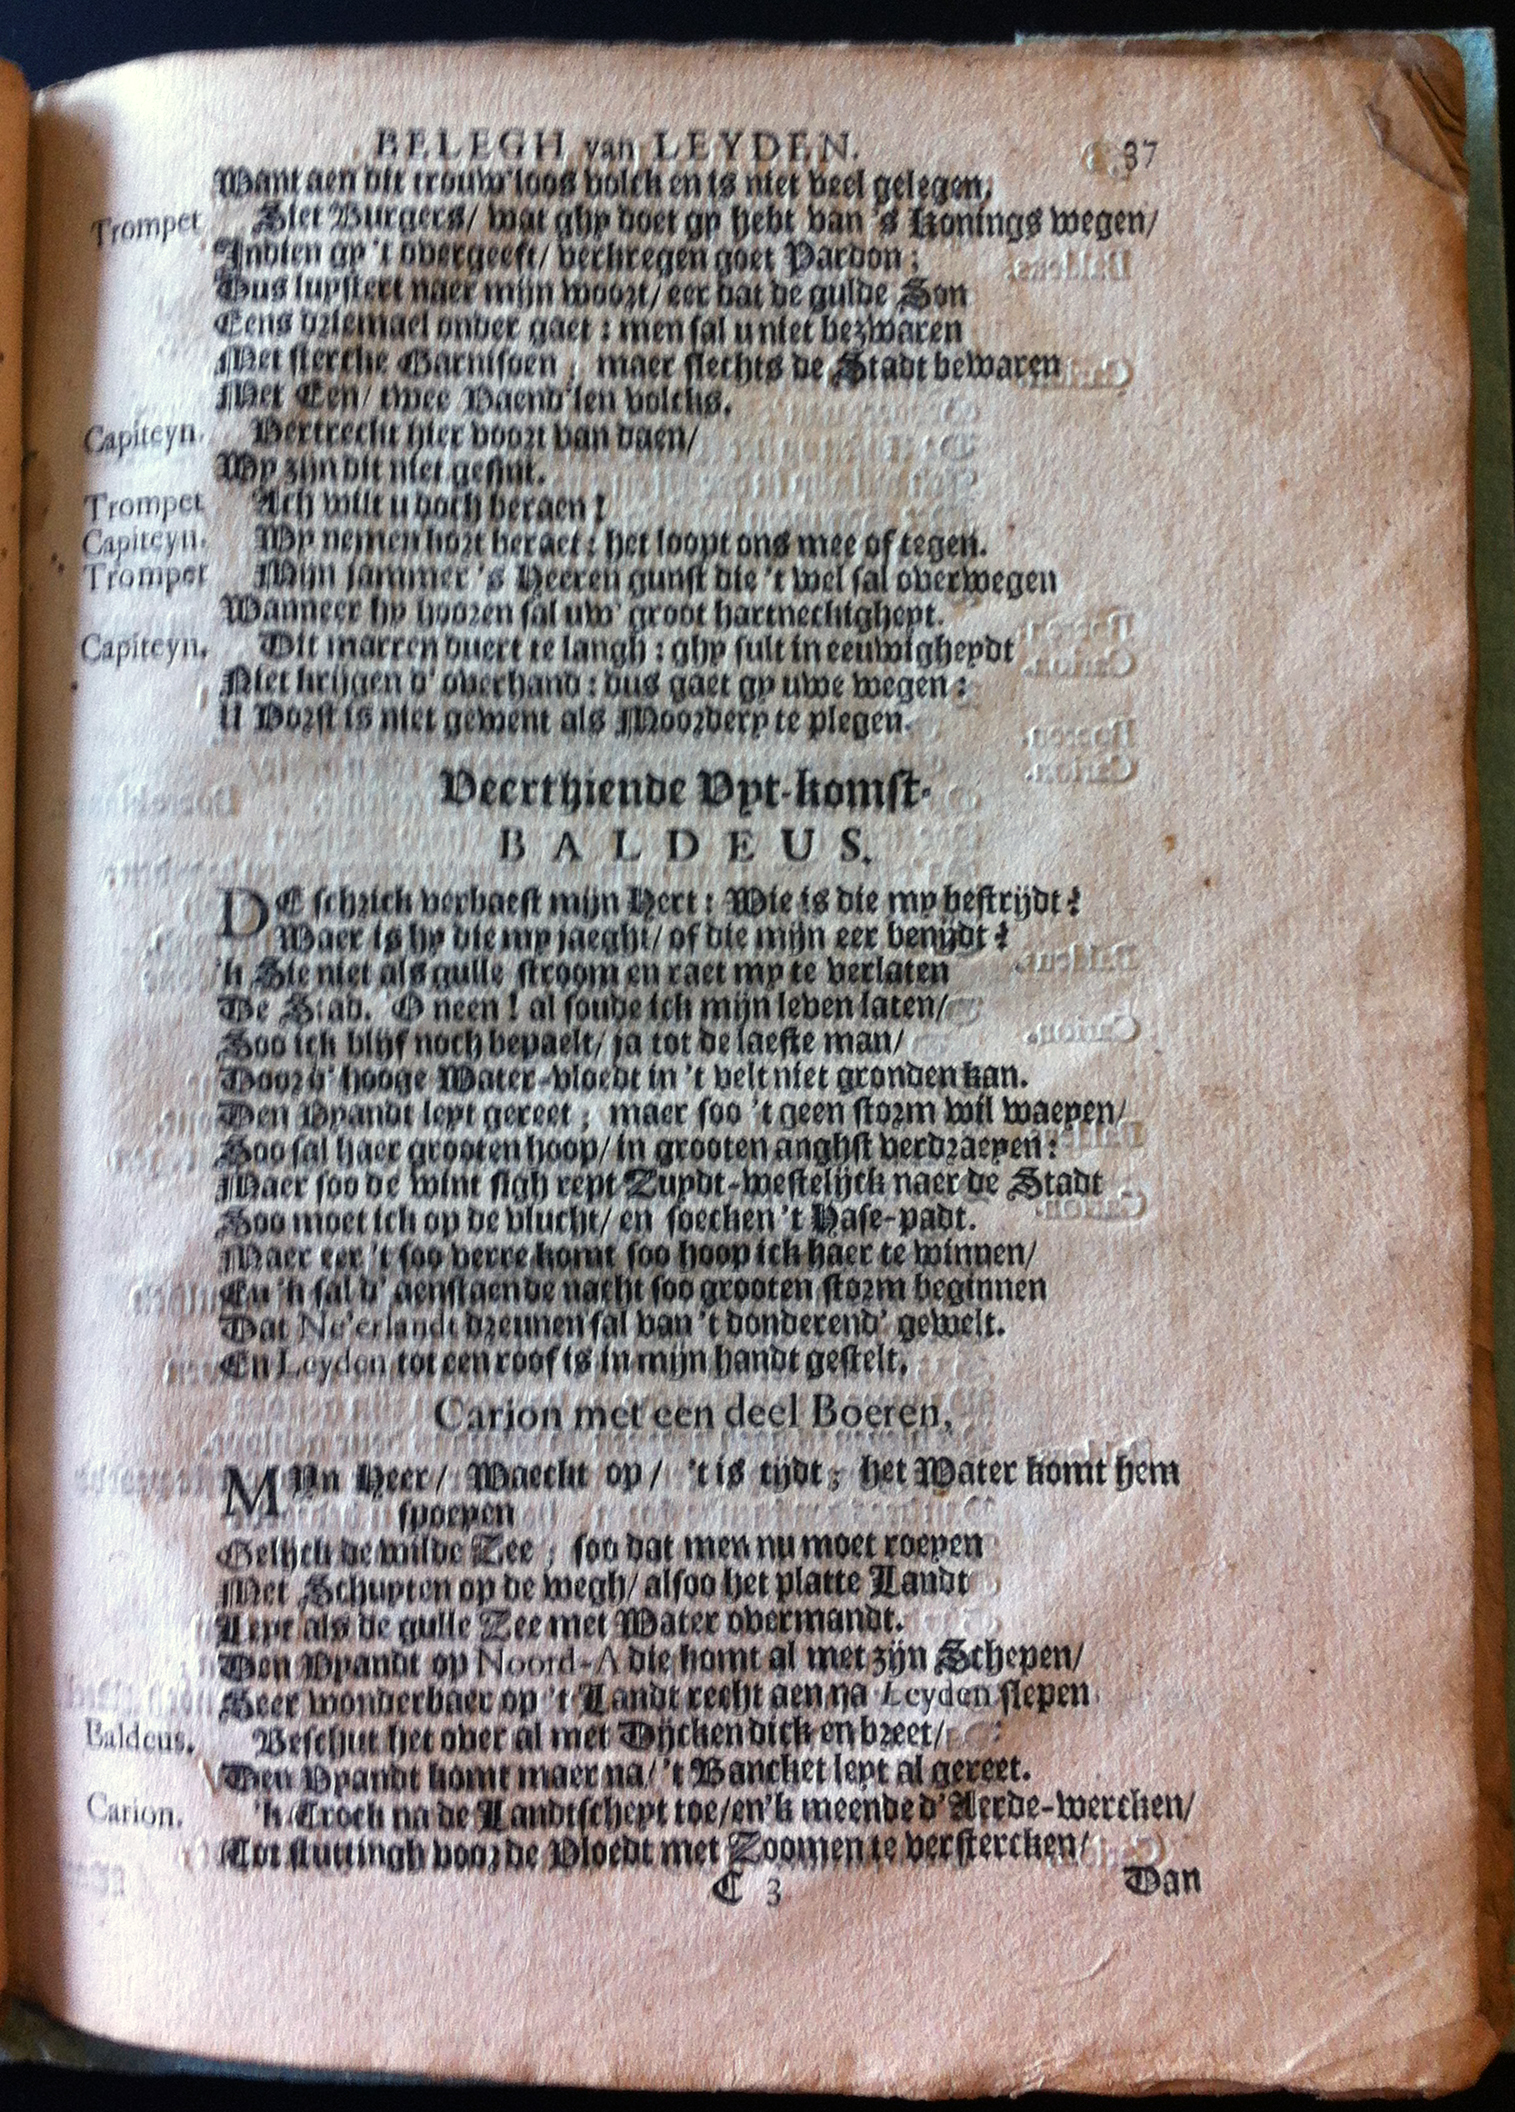 BELEGH van LEYDEN. 37
Want aen dit trouw'loos volck en is niet veel gelegen.
Trompet Siet Burgers/ wat ghy doet gy hebt van 's Konings wegen/
Indien gy 't overgeeft/ verkregen goet Pardon;
Dus luystert naer mijn woort/ eer dat de gulde Son
Eens driemael onder gaet: men sal u niet bezwaren
Met stercke Garnisoen; maer slechts de Stadt bewaren
Met Een/ twee Vaend'len volcks.
Capiteyn. Vertreckt hier voort van daen/
Wy zijn dit niet gesint.
Trompet Ach wilt u doch beraen!
Capiteyn. Wy nemen kort beraet: het loopt ons mee of tegen.
Trompet Mijn jammer 's Heeren gunst die 't wel sal overwegen
Wanneer hy hooren sal uw' groot hartneckigheyt.
Capiteyn. Dit marren duert te langh: ghy sult in eeuwigheydt
Niet krijgen d' overhand: dus gaet gy uwe wegen:
U Vorst is niet gewent als Moordery te plegen.
Veerthiende Uyt-komst.
BALDEUS.
DE schrick verbaest mijn Hert: Wie is die my bestrijdt?
Waer is hy die my jaeght/ of die mijn eer benijdt?
'k Sie niet als gulle stroom en raet my te verlaten
De Stad. O neen! al soude ick mijn leven laten/
Soo ick blijf noch bepaelt/ ja tot de laeste man/
Door d' hooge Water-vloedt in 't velt niet gronden kan.
Den Vyandt leyt gereet; maer soo 't geen storm wil waeyen/
Soo sal haer grooten hoop/ in grooten anghst verdraeyen:
Maer soo de wint sigh rept Zuydt-westelijck naer de Stadt
Soo moet ick op de vlucht/ en soecken 't Hase-padt.
Maer eer 't soo verre komt soo hoop ick haer te winnen/
En 'k sal d' aenstaende nacht soo grooten storm beginnen
Dat Ne'erlandt dreunen sal van 't donderend' gewelt.
En Leyden tot een roof is in mijn handt gestelt.
Carion met een deel Boeren,
MYn Heer/ Waeckt op/ 't is tijdt; het Water komt hem
spoeyen
Gelijck de wilde Zee; soo dat men nu moet roeyen
Met Schuyten op de wegh/ alsoo het platte Landt
Leyt als de gulle Zee met Water overmandt.
Den Vyandt op Noord-A die komt al met zijn Schepen/
Seer wonderbaer op 't Landt recht aen na Leyden slepen.
Baldeus. Beschut het over al met Dijcken dick en breet/
Den Vyandt komt maer na/ 't Bancket leyt al gereet.
Carion. 'k Trock na de Landtscheyt toe/ en 'k meende d' Aerde-wercken/
Tot stuttingh voor de Vloedt met Zoomen te verstercken/
C 3 Dan